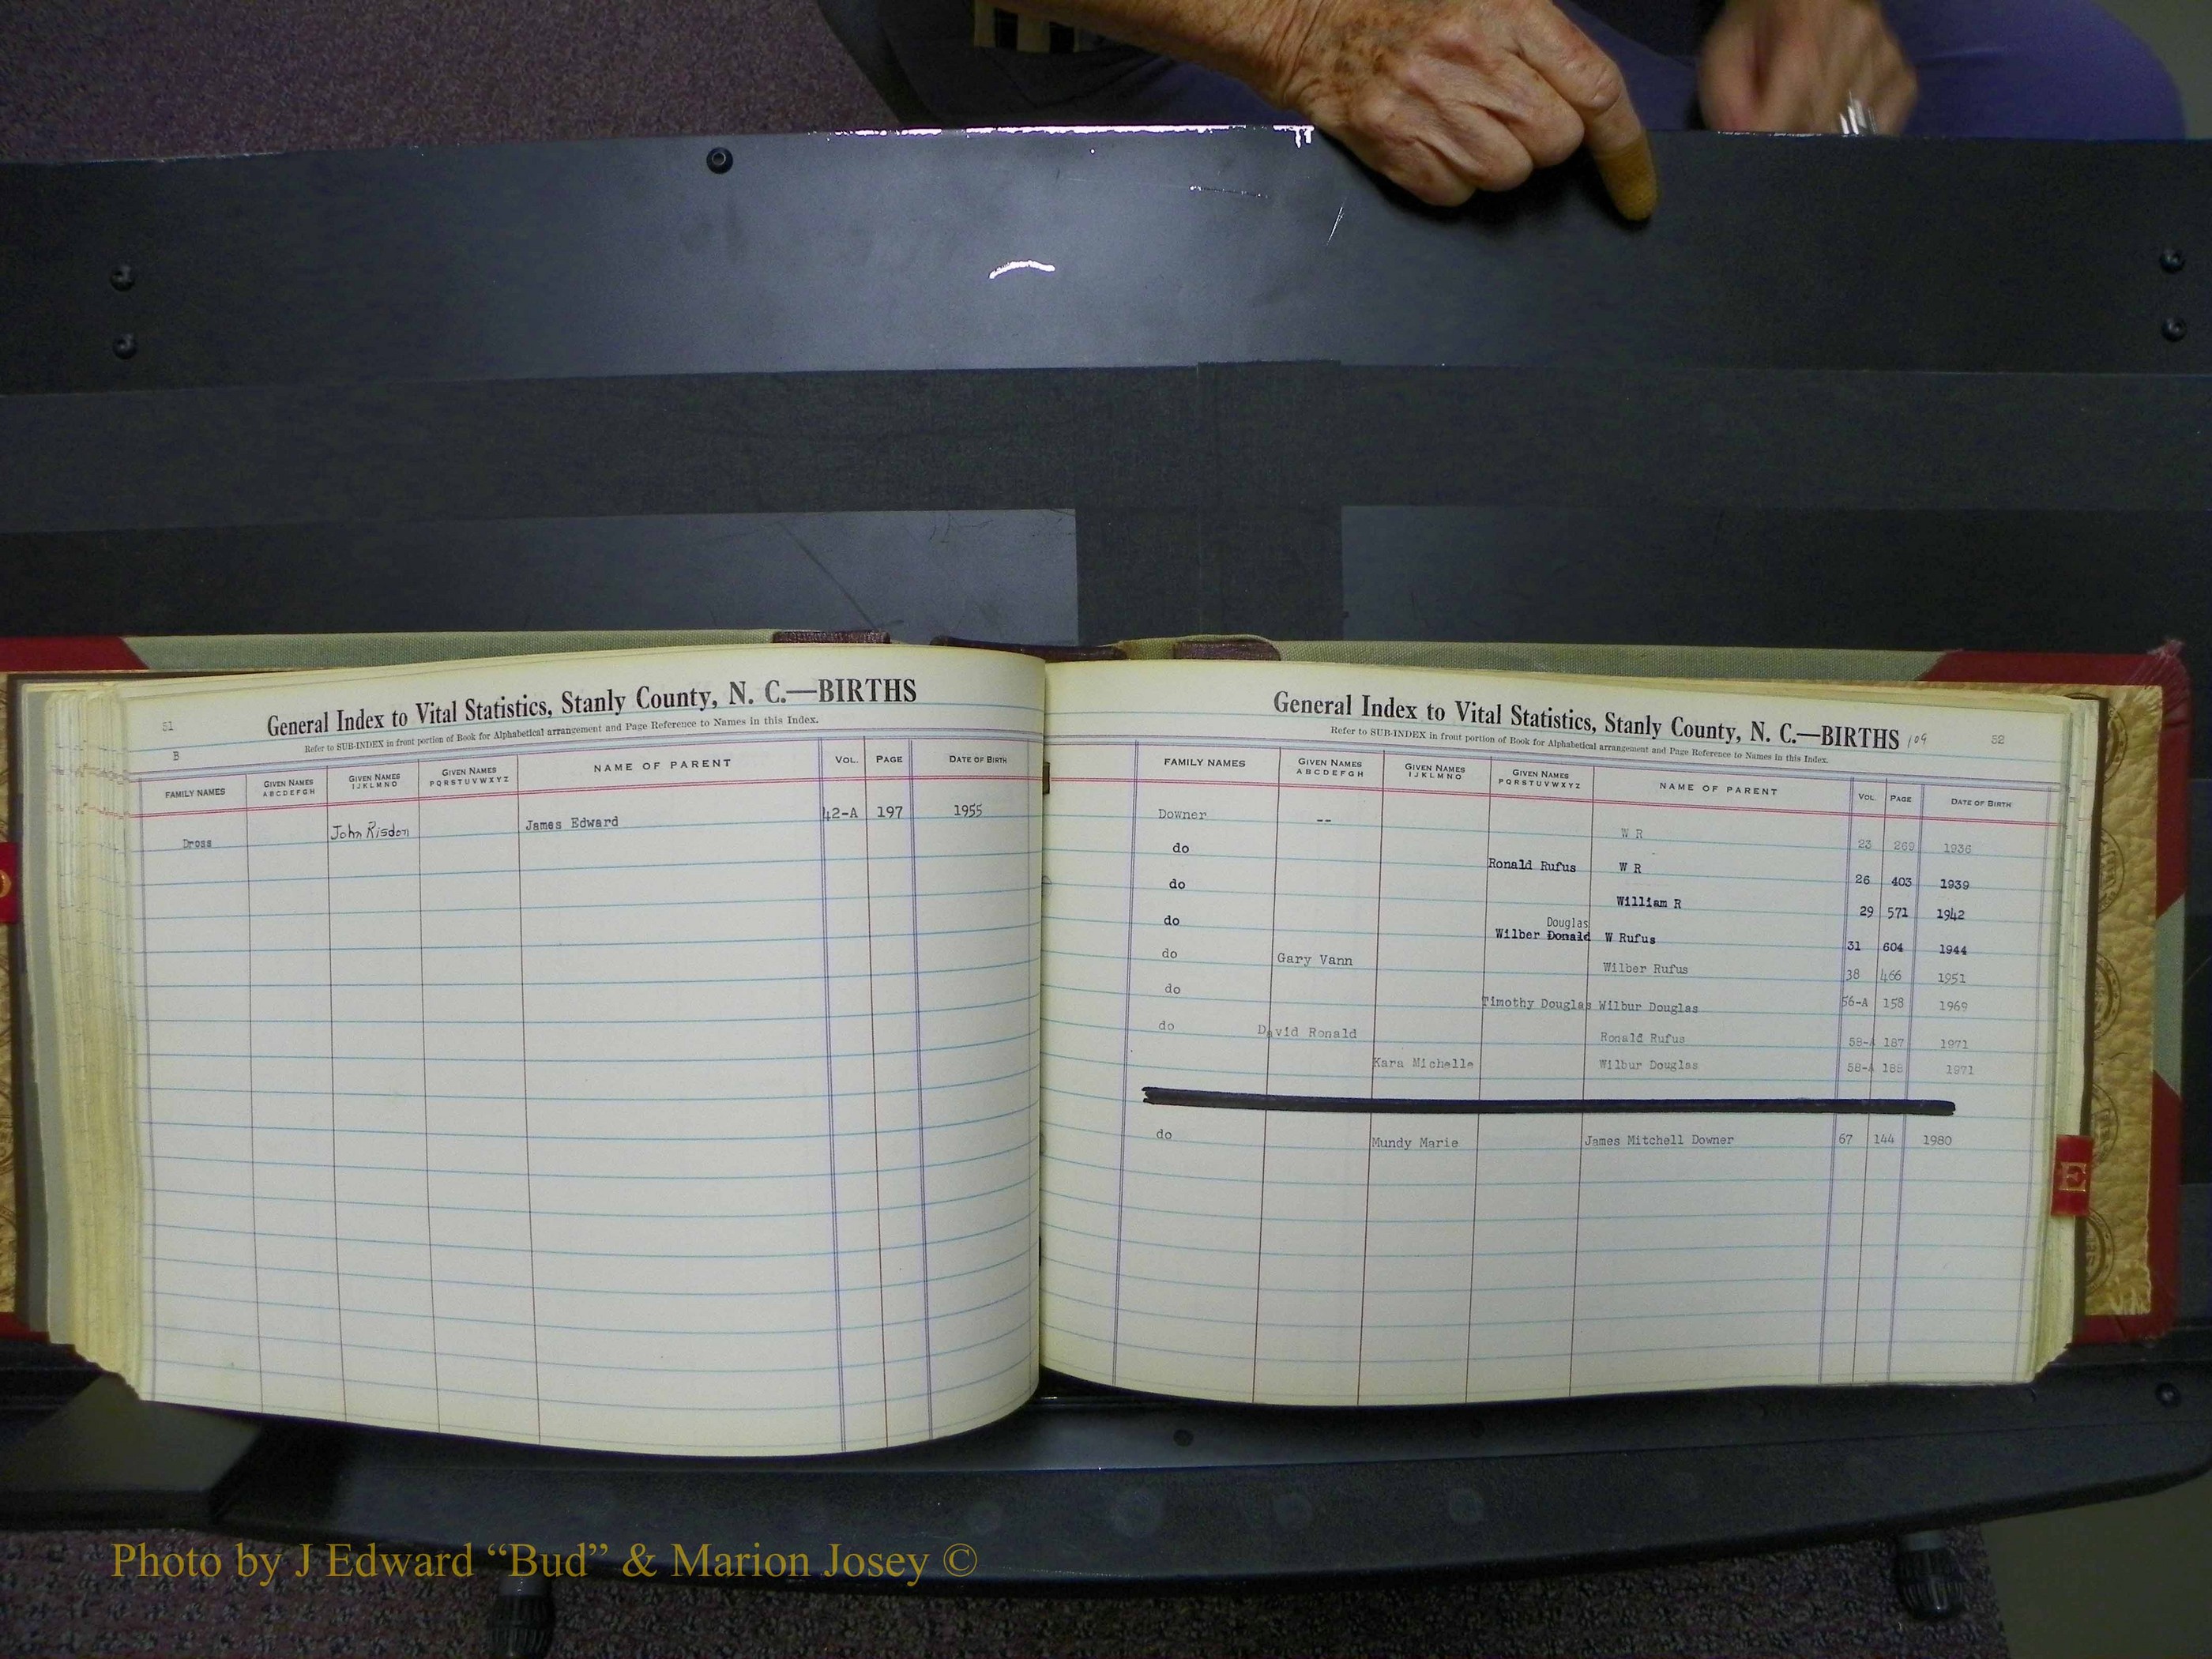 51
B
General Index to Vital Statistics, Stanly County, N. C.—BIRTHS
Refer to SUB-INDEX in front portion of Book for Alphabetical arrangement and Page Reference to Names in this Index.
FAMILY NAMES GIVEN NAMES ABCDEFGH GIVEN NAMES IJKLMNO GIVEN NAMES PQRSTUVWXYZ NAME OF PARENT VOL. PAGE DATE OF BIRTH
Dross John Risdon James Edward 42-A 197 1955
General Index to Vital Statistics, Stanly County, N. C.—BIRTHS 109 52
Refer to SUB-INDEX in front portion of Book for Alphabetical arrangement and Page Reference to Names in this Index.
FAMILY NAMES GIVEN NAMES ABCDEFGH GIVEN NAMES IJKLMNO GIVEN NAMES PQRSTUVWXYZ NAME OF PARENT VOL. PAGE DATE OF BIRTH
Downer -- W R 23 269 1936
do Ronald Rufus W R 26 403 1939
do William R 29 571 1942
Douglas
do Wilber Donald W Rufus 31 604 1944
do Gary Vann Wilber Rufus 38 466 1951
do Timothy Douglas Wilbur Douglas 56-A 158 1969
do David Ronald Ronald Rufus 58-A 187 1971
Kara Michelle Wilbur Douglas 58-A 188 1971
do Mundy Marie James Mitchell Downer 67 144 1980
E
Photo by J Edward “Bud” & Marion Josey ©